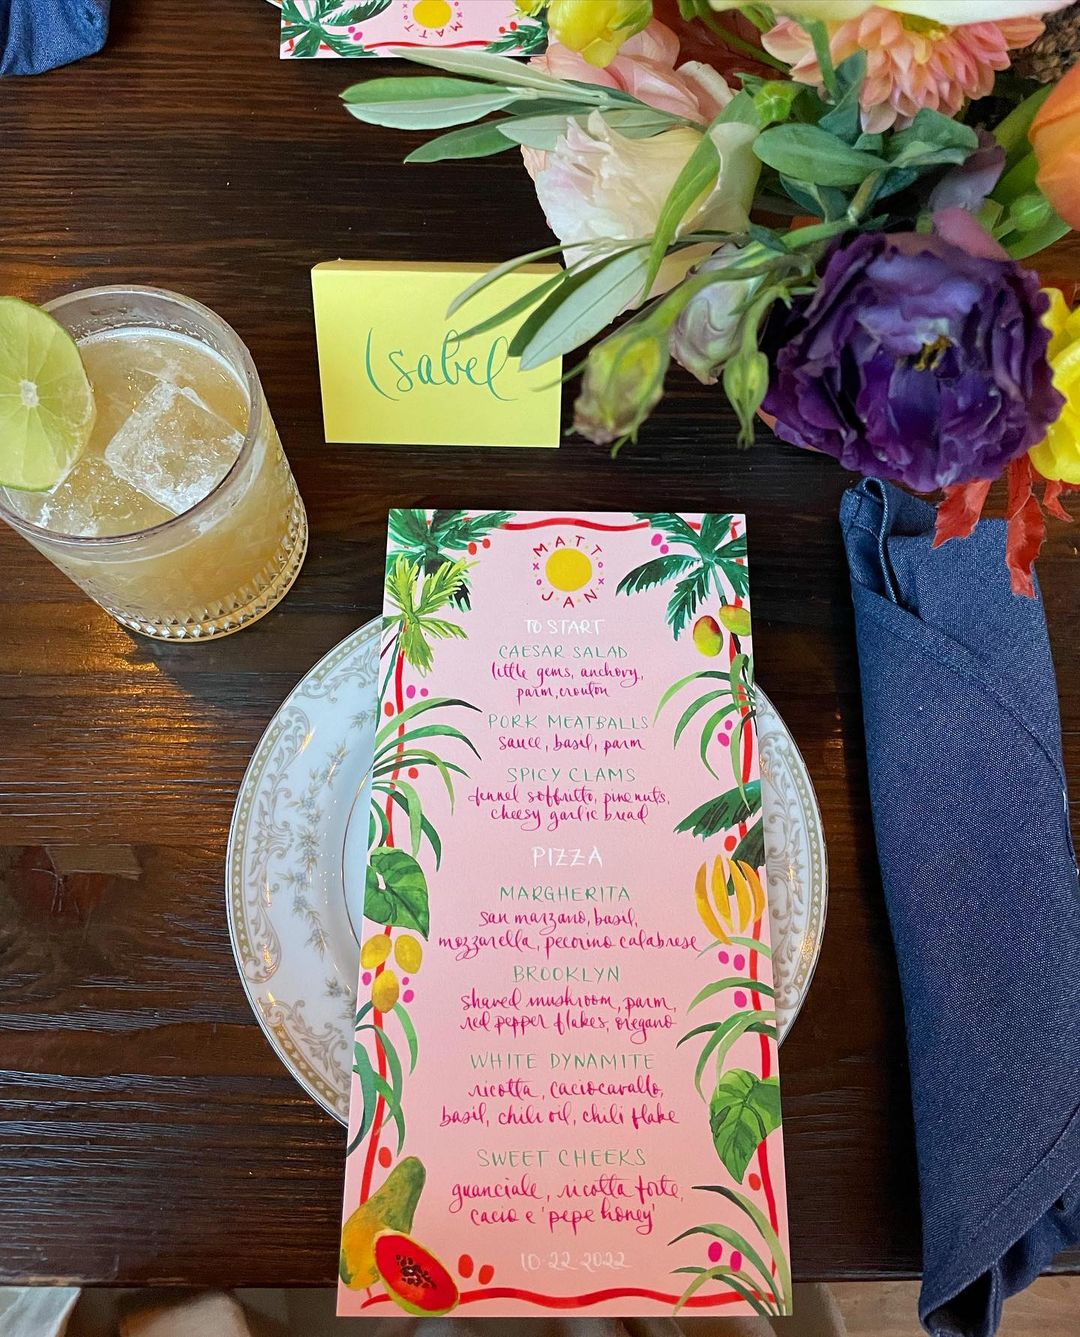 MATT
Isabel
MATT
xo xo
JAN
TO START
CAESAR SALAD
little gems, anchovy,
parm, crouton
PORK MEATBALLS
sauce, basil, parm
SPICY CLAMS
fennel soffritto, pine nuts,
cheesy garlic bread
PIZZA
MARGHERITA
san marzano, basil,
mozzarella, pecorino calabrese
BROOKLYN
shaved mushroom, parm,
red pepper flakes, oregano
WHITE DYNAMITE
ricotta, caciocavallo,
basil, chili oil, chili flake
SWEET CHEEKS
guanciale, ricotta forte,
cacio e 'pepe honey'
10-22-2022